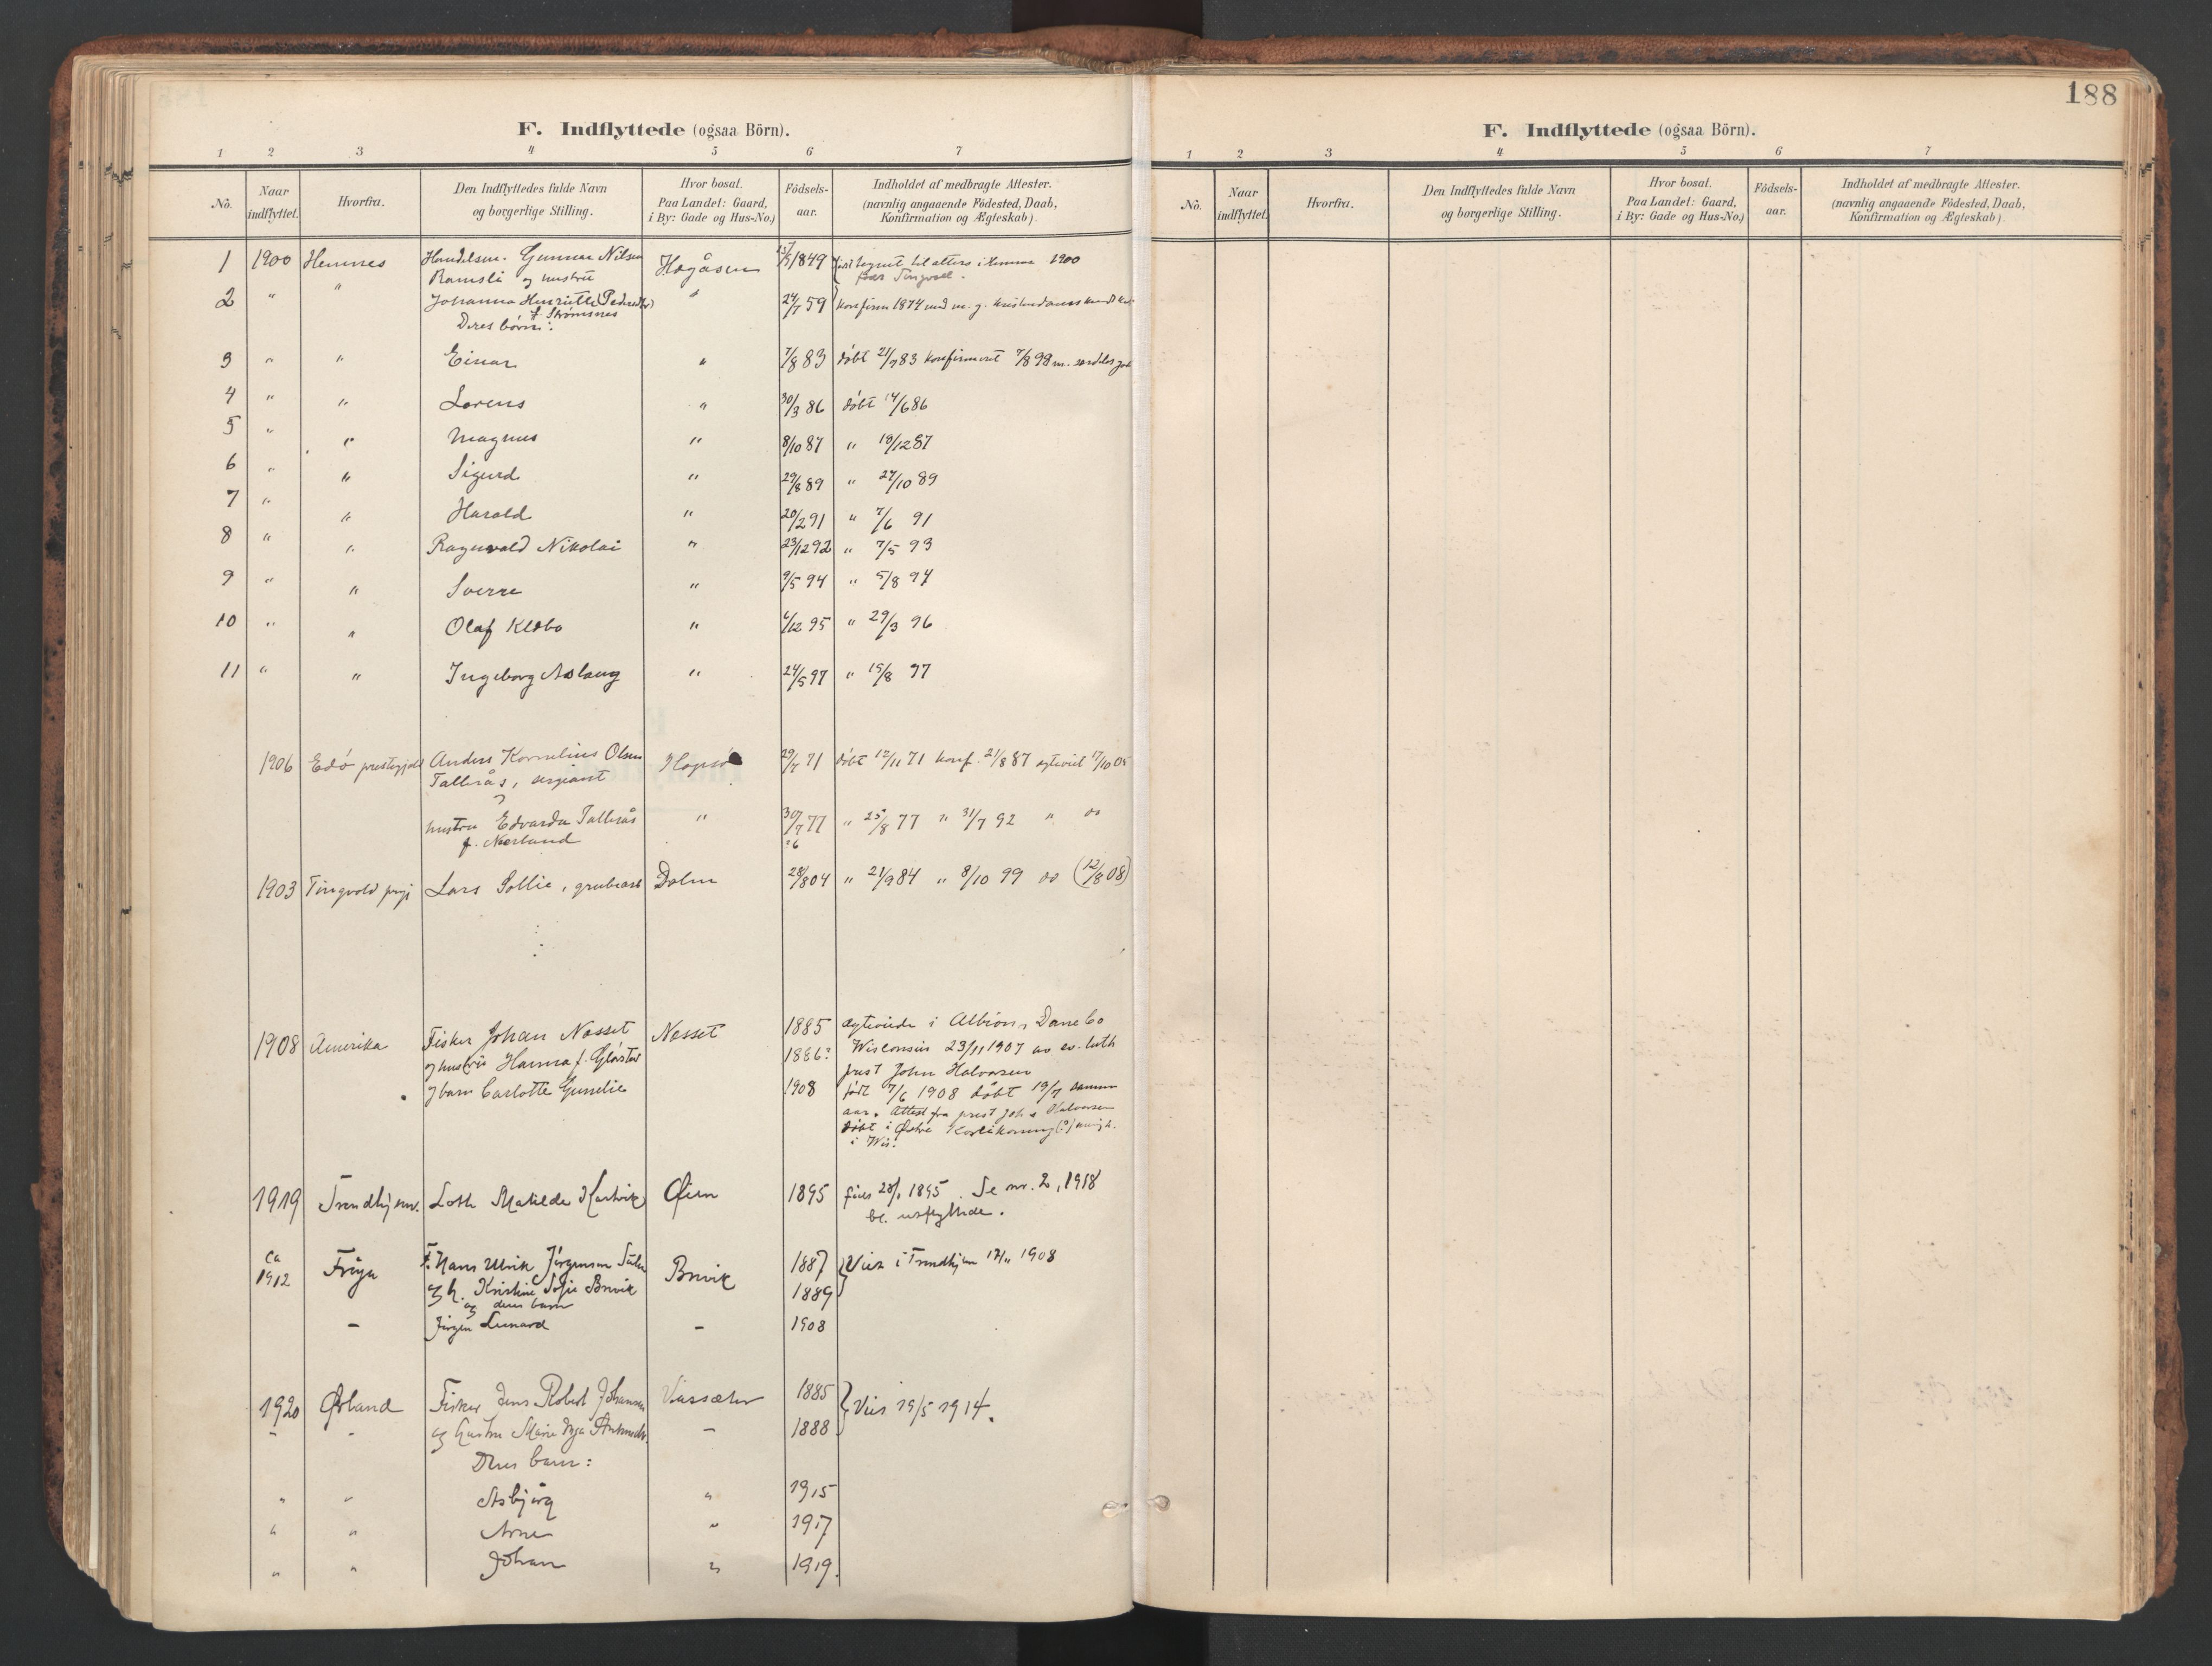 188
F. Indflyttede (ogsaa Börn).
1 2 3 4 5 6 7
No. Naar indflyttet. Hvorfra. Den Indflyttedes fulde Navn og borgerlige Stilling. Hvor bosat. Paa Landet: Gaard, i By: Gade og Hus-No.) Födsels-aar. Indholdet af medbragte Attester. (navnlig angaaende Födested, Daab, Konfirmation og Ægteskab).
1 1900 Hemnes Handelsm. Gunnar Nilsen Hogåsen /1849 1900
Ramsli og hustru
2 " " Johanna Henriette " 24/7 59 konfirm 1874 med m. g.
f. Strömsnes
Deres börn:
3 " " Einar " 7/8 83 döbt 21/9 83 konfirmeret 7/8 98 m.
4 " " Lorens " 30/3 86 döbt 14/6 86
5 " " Magnus " 8/10 87 " 18/12 87
6 " " Sigurd " 29/8 89 " 27/10 89
7 " " Harald " 20/2 91 " 7/6 91
8 " " Ragnvald Nikolai " 23/12 92 " 7/5 93
9 " " Sverre " 9/5 94 " 5/8 94
10 " " Olaf Klebo " 6/12 95 " 29/3 96
11 " " Ingeborg Aslaug " 24/5 97 " 15/8 97
1906 Edö prestegjeld Anders Kornelius Olsen Hopsö 29/7 71 döbt 12/11 71 konf. 21/8 87 17/10 05
Tallerås, sergeant
hustru Edvarda Tallerås " 30/7 77 " 25/8 77 " 31/7 92 " do
f. Nerland
1903 Tingvold Lars Sollie, Dolm 28/8 04 " 21/9 84 " 8/10 99 do (12/8 08)
1908 Amerika Fisker Johan Nesset Nesset 1885 egteviede i Albion, Dane Co
og hustru Hanna f. 1886? Wisconsin 23/11 1907 av ev. luth
prest John Halvorsen
og barn Carlotte 1908 födt 7/6 1908 döbt 19/7 samme
aar. Attest fra prest John Halvorsen
döbt i Østre
i Wis.
1919 Trondhjem. Loth Matilde Øien 1895 1895. Se nr. 2, 1918
bl. utflyttede.
Ca 1912 Fröya F. Hans Ulrik Jörgensen Brevik 1887 Viet i Trondhjem 1908
og h. Kristine Sofie Brevik 1889
og deres barn
– Jörgen Lenard – 1908
1920 Ørland Fisker Jens Robert Johansen 1885 Viet 19/5 1914.
" " og hustru Marie – 1888
Deres barn:
" " Asbjörg " 1915
" " Arne " 1917
" " Johan " 1919.
F. Indflyttede (ogsaa Börn).
1 2 3 4 5 6 7
No. Naar indflyttet. Hvorfra. Den Indflyttedes fulde Navn og borgerlige Stilling. Hvor bosat. Paa Landet: Gaard, i By: Gade og Hus-No.) Födsels-aar. Indholdet af medbragte Attester. (navnlig angaaende Födested, Daab, Konfirmation og Ægteskab).